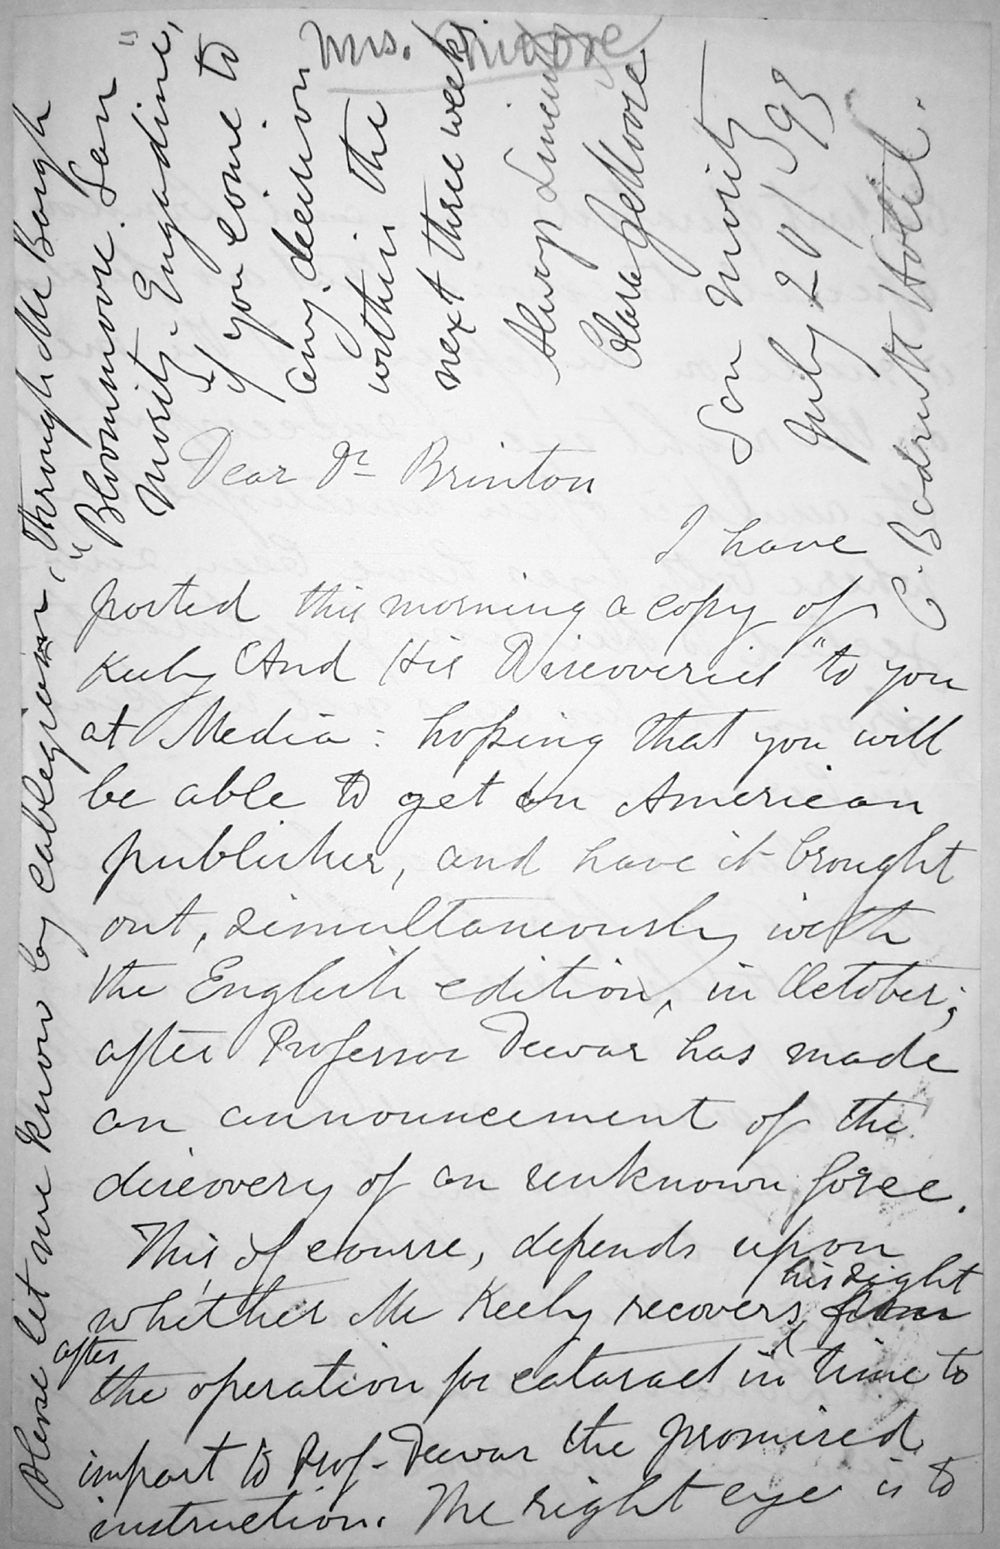 Mrs. Moore
San Moritz
July 20/93
C. Badrutt Hotel.
Dear Dr Brinton
I have
posted this morning a copy of
Keely And His Discoveries" to you
at Media: hoping that you will
be able to get an American
publisher, and have it brought
out, simultaneously with
the English edition, in October;
after Professor Dewar has made
an announcement of the
discovery of an unknown force.
This of course, depends upon
whether Mr Keely recovers his sight
after
the operation for cataract in time to
impart to Prof. Dewar the promised
instruction. The right eye is to
Please let me know by cablegram, through Mr Bough
"Bloommoore. San
Moritz. Engadine,"
if you come to
any decision
within the
next three weeks
Always Sincerely
Clara J Moore